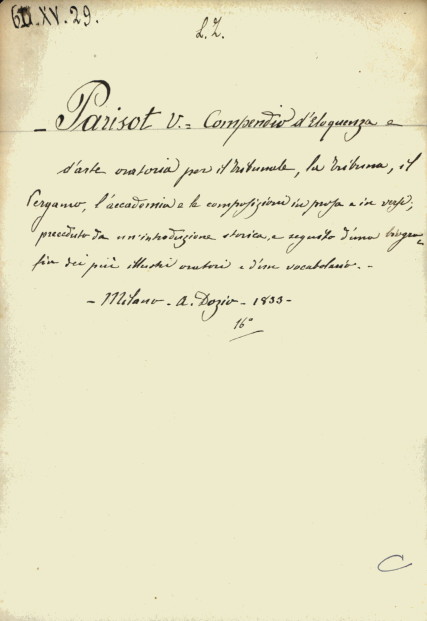 XV. 29.
L. Z.
- Parisot V. = Compendio d'Eloquenza e
d'arte oratoria per il Tribunale, la Tribuna, il
Pergamo, l'accademia e le composizioni in prosa e in versi;
preceduto da un'introduzione storica, e seguito d'una biogra=
fia dei più illustri oratori e d'un vocabolario. -
- Milano - A. Dozio - 1833 -
16°
C